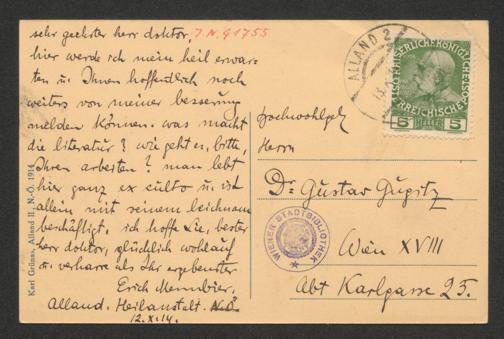 sehr geehrter herr doktor, J.N.91755
hier werde ich mein heil erwar-
ten u. Ihnen hoffentlich noch
weiters von meiner besserung
melden können. was macht
die literatur? wie geht es, bitte,
Ihren arbeiten? man lebt
hier ganz ex culto u. ist
allein mit seinem leichnam
beschäftigt, ich hoffe Sie, bester
herr doktor, glücklich wohlauf
u. verharre als Ihr ergebenster
Erich
Alland. Heilanstalt. N.Ö.
12.X.14.
Karl Grüuss, Alland II, N.-Ö. 1914
ALLAND 2
KAISERLICHE KÖNIGLICHE
ÖSTERREICHISCHE
5 HELLER 5
Hochwohlgeb
Herrn
Dr Gustav Gugitz
WIENER STADTBIBLIOTHEK
Wien XVIII
Abt Karlgasse 25.